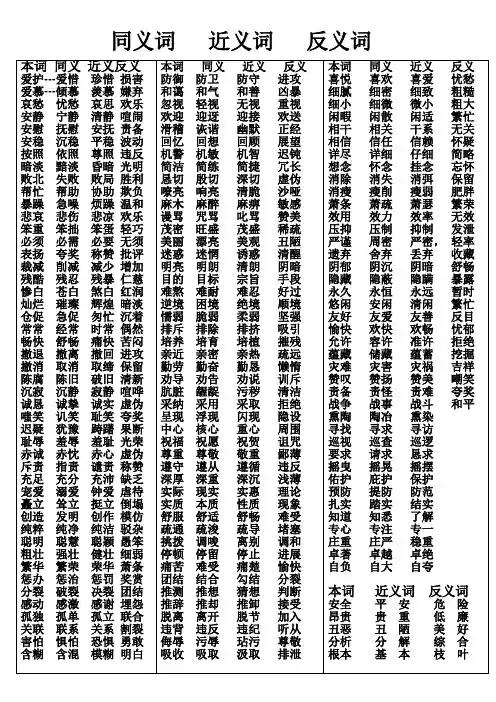 同义词 近义词 反义词
本词 同义 近义反义
爱护---爱惜 珍惜 损害
爱慕---倾慕 羡慕 嫌弃
哀愁 忧愁 哀思 欢乐
安静 宁静 清静 喧闹
安慰 抚慰 安抚 责备
安稳 沉稳 平稳 波动
按照 依照 尊照 违反
暗淡 黯淡 昏暗 光明
败北 失败 败局 胜利
帮忙 帮助 协助 欺负
暴躁 急躁 烦躁 温和
悲哀 悲伤 悲凉 欢乐
笨重 笨拙 笨蛋 轻巧
必须 必需 必要 无须
表扬 夸奖 称赞 批评
裁减 削减 减少 增加
残酷 残忍 残暴 仁慈
惨白 苍白 煞白 红润
灿烂 璀璨 辉煌 暗淡
仓促 急促 匆忙 沉着
常常 经常 时常 偶然
畅快 舒畅 痛快 苦闷
撤退 撤离 撤回 进攻
撤消 取消 取缔 保留
陈腐 陈旧 破旧 清新
沉寂 沉静 寂静 喧哗
诚恳 诚挚 诚实 虚伪
嗤笑 讥笑 耻笑 夸奖
迟疑 犹豫 踌躇 果断
耻辱 羞辱 羞耻 光荣
赤诚 赤忱 赤心 虚伪
斥责 指责 谴责 称赞
充足 充分 充沛 缺乏
宠爱 溺爱 钟爱 虐待
矗立 耸立 挺立 倒塌
创造 发明 创作 模仿
纯粹 纯净 纯洁 驳杂
聪明 聪慧 聪颖 愚笨
粗壮 强壮 健壮 细弱
繁华 繁荣 荣华 萧条
惩办 惩治 惩罚 奖赏
分裂 破裂 决裂 团结
感动 感激 感谢 埋怨
孤独 孤单 孤立 联合
关联 联系 关系 割裂
害怕 惧怕 恐惧 勇敢
含糊 含混 模糊 明白
本词 同义 近义 反义
防御 防卫 防守 进攻
和蔼 和气 和善 凶暴
忽视 轻视 无视 重视
欢迎 迎迓 迎接 欢送
滑稽 诙谐 幽默 正经
回忆 回想 回顾 展望
机警 机敏 机智 迟钝
简洁 简练 简捷 冗长
恳切 殷切 深切 虚伪
嘹亮 响亮 清脆 沙哑
麻木 麻醉 麻痹 敏感
谩骂 咒骂 叱骂 赞美
茂密 旺盛 茂盛 稀疏
美丽 漂亮 美观 丑陋
迷惑 迷惘 诱惑 清醒
明亮 明朗 清朗 阴暗
目的 目标 宗旨 手段
难熬 难耐 难忍 好过
逆境 困境 绝境 顺境
懦弱 脆弱 柔弱 坚强
排斥 排除 排挤 吸引
培养 培育 培植 摧残
亲近 亲密 亲热 疏远
勤劳 勤奋 勤恳 懒惰
劝导 劝告 劝说 训斥
肮脏 龌龊 污秽 清洁
采纳 采用 采取 拒绝
呈现 浮现 闪现 隐没
中心 核心 重心 周围
祝福 祝愿 祝贺 诅咒
尊重 尊敬 敬重 鄙薄
遵守 遵从 遵循 违反
深厚 深重 深沉 浅薄
实际 现实 实惠 理论
实质 本质 性质 现象
舒服 舒适 舒畅 难受
疏通 疏浚 疏导 堵塞
挑拨 调唆 离别 调和
停顿 停留 停止 进展
痛苦 难受 痛楚 愉快
团结 结合 勾结 分裂
推测 推想 猜想 判断
推辞 推却 推卸 接受
脱离 离开 脱节 加入
违背 违反 违纪 听从
侮辱 污辱 玷污 尊敬
吸收 吸取 汲取 排泄
本词 同义 近义 反义
喜悦 喜欢 喜爱 忧愁
细腻 细密 细致 粗糙
细小 细微 微小 粗大
闲暇 闲散 闲适 繁忙
相干 相关 干系 无关
相信 信任 信赖 怀疑
详尽 详细 仔细 简略
想念 怀念 挂念 忘怀
消除 消失 消弭 保留
消瘦 瘦削 瘦弱 肥胖
萧条 萧疏 萧瑟 繁荣
效用 效力 效率 无效
压抑 压制 抑制 发泄
严谨 周密 严密， 轻率
遗弃 舍弃 丢弃 收藏
阴郁 阴沉 阴暗 舒畅
隐藏 隐蔽 隐瞒 暴露
永久 永恒 永远 暂时
悠闲 安闲 清闲 繁忙
友好 友爱 友善 反目
愉快 欢快 欢畅 忧郁
允许 容许 准许 拒绝
蕴藏 储藏 蕴蓄 挖掘
灾难 灾害 灾祸 吉祥
赞叹 赞扬 赞美 嘲笑
责备 责怪 责难 夸奖
战争 战事 战斗 和平
熏陶 陶冶 熏染
寻找 寻求 寻访
巡视 巡查 巡逻
要求 请求 恳求
摇曳 摇晃 摇摆
佑护 庇护 保护
预防 提防 防范
扎实 踏实 结实
知道 知悉 了解
专心 专注 专一
庄重 庄严 稳重
卓著 卓越 卓绝
自负 自大 自夸
本词 近义词 反义词
安全 平 安 危 险
昂贵 贵 重 低 廉
丑恶 丑 陋 美 好
分析 分 解 综 合
根本 基 本 枝 叶